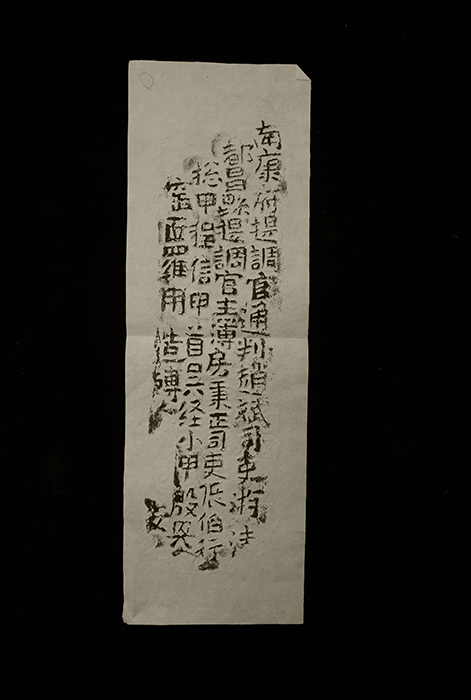 南康府提調官通判趙斌司吏游
都昌縣提調官主簿房秉正司吏張伯行
総甲程信甲首吕六経小甲殷
窑匠羅用造磚人